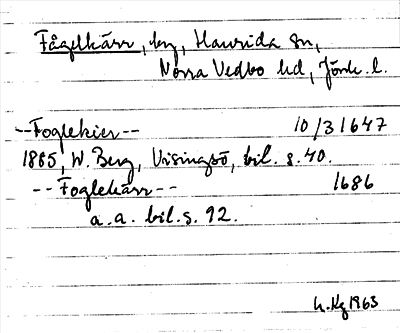 Fågelkärr, by, Haurida sn,
Norra Vedbo hd, Jönk. l.
--Foglekier-- 10/3 1647
1885, W. Berg, Visingsö, bil. s. 40.
--Foglekärr-- 1686
a. a. bil. s. 92.
1963